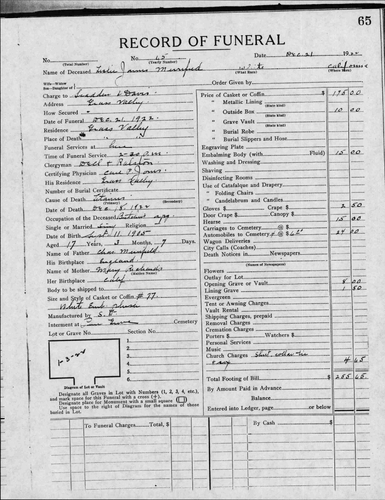 65
RECORD OF FUNERAL
No. 65 Date Dec. 21 1922
(Total Number) (Yearly Number)
Name of Deceased Leslie James White California
(What Race) (Where Born)
Husband or Wife—
Son or Daughter of
Charge to
Address Grass Valley
How Secured
Date of Funeral Dec. 21, 1922
Residence Grass Valley
Place of Death
Funeral Services at
Time of Funeral Service 2:30 P.M.
Clergyman Ralston
Certifying Physician Carl P. Jones
His Residence Grass Valley
Number of Burial Certificate
Cause of Death
Date of Death Dec. 1922
Occupation of the Deceased
Single or Married Religion
Date of Birth Sept. 11 1905
Aged 17 Years, 3 Months, 7 Days
Name of Father
His Birthplace England
Name of Mother Mary Richards
Her Birthplace Calif
Body to be shipped to
Size and Style of Casket or Coffin #77
White
Manufactured by S. F.
Interment at Cemetery
Lot or Grave No. Section No.
Diagram of Lot or Vault
1
2
3
4
5
6
Designate all Graves in Lot with Numbers (1, 2, 3, 4, etc.),
and mark space for this Funeral with a cross (+).
Designate place for Monument with a small square
Use space to right of Diagram for the names of those
buried in Lot.
Order Given by
Price of Casket or Coffin 175 00
" Metallic Lining
(State Kind)
" Outside Box 10 00
(State Kind)
" Grave Vault
(State Kind)
" Burial Robe
(State Kind)
" Burial Slippers and Hose
Engraving Plate
Embalming Body (with Fluid) 15 00
Washing and Dressing
Shaving
Disinfecting Rooms
Use of Catafalque and Drapery
" Folding Chairs
" Candelabrum and Candles
Gloves $ Crape $ 2 50
Door Crape $ Canopy $
Hearse 15 00
Carriages to Cemetery @ $
Automobiles to Cemetery @ $ 24 00
Wagon Deliveries
City Calls (Coaches)
Death Notices in Newspapers
(Names of Newspapers)
Flowers
Outlay for Lot
Opening Grave or Vault 8 00
Lining Grave 1 50
Evergreen
Tent or Awning Charges
Vault Rental
Shipping Charges, prepaid
Removal Charges
Cremation Charges
Porters $ Watchers $
Personal Services
Music
Church Charges Shirt, collar 4 65
Total Footing of Bill $ 255 65
By Amount Paid in Advance
Balance
Entered into Ledger, page or below
To Funeral Charges, Total, $ By Cash $